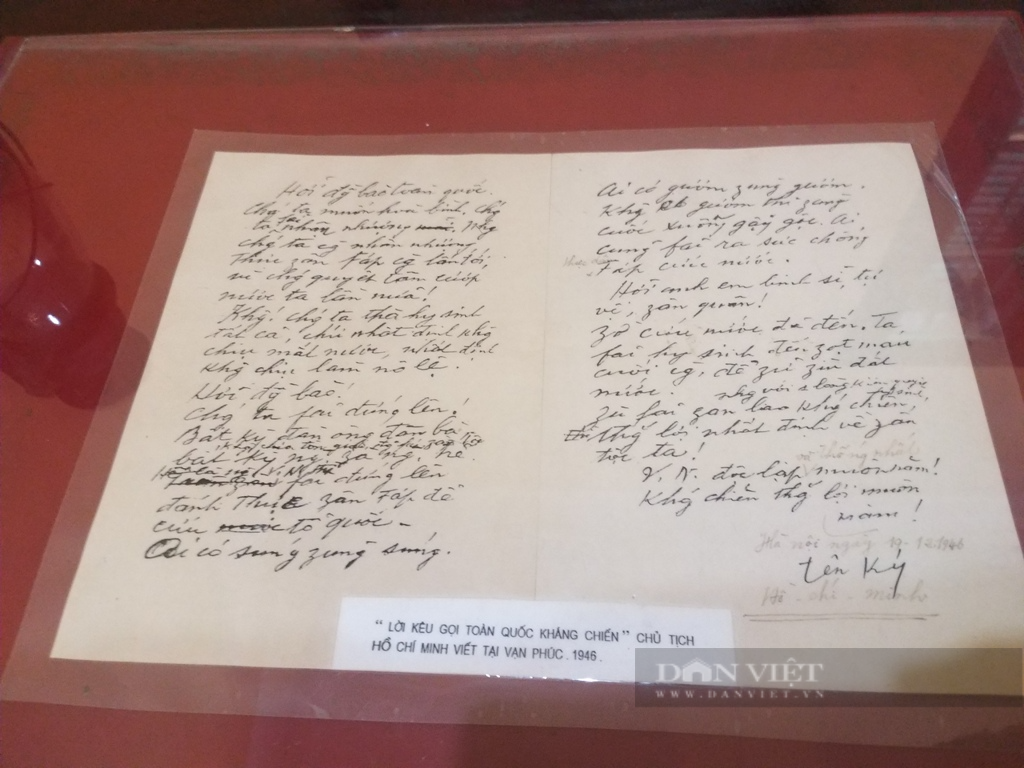 Hỡi đg bào toàn quốc.
Chg ta muốn hoà bình. Chg
ta phải nhân nhượng. Nhg
chg ta cg nhân nhượng
thực zân Fáp cg lấn tới,
vì chg quyết tâm cướp
nước ta lần nữa!
Khg! chg ta thà hy sinh
tất cả, chứ nhất định khg
chịu mất nước, nhất định
khg chịu làm nô lệ.
Hỡi đg bào!
Chg ta fải đứng lên!
Bất kỳ đàn ông đàn bà,
bất kỳ ng` zà ng` trẻ.
khg chia tôn záo
Hễ là ng` V.N. thì
fải đứng lên
đánh thực zân Fáp để
cứu nước tổ quốc -
Ai có súng zùng súng.
Ai có gươm zùng gươm.
Khg có gươm thì zùng
cuốc xuổng gậy gộc. Ai
cũng fải ra sức chống
Fáp cứu nước.
Hỡi anh em binh sĩ, tự
vệ, zân quân!
Zờ cứu nước đã đến. Ta
fải hy sinh đến zọt máu
cuối cg, để zữ zìn đất
nước.
Zù fải zan lao khg chiến,
nhg với 1 lòng kiên quyết
thg lợi nhất định về zân
tộc ta!
và thống nhất
V.N. độc lập muôn năm!
Khg chiến thg lợi muôn
năm!
Hà nội ngày 19-12-1946
tên ký
Hồ - chí - minh
“ LỜI KÊU GỌI TOÀN QUỐC KHÁNG CHIẾN ” CHỦ TỊCH
HỒ CHÍ MINH VIẾT TẠI VẠN PHÚC . 1946 .
DÂN VIỆT
WWW.DANVIET.VN